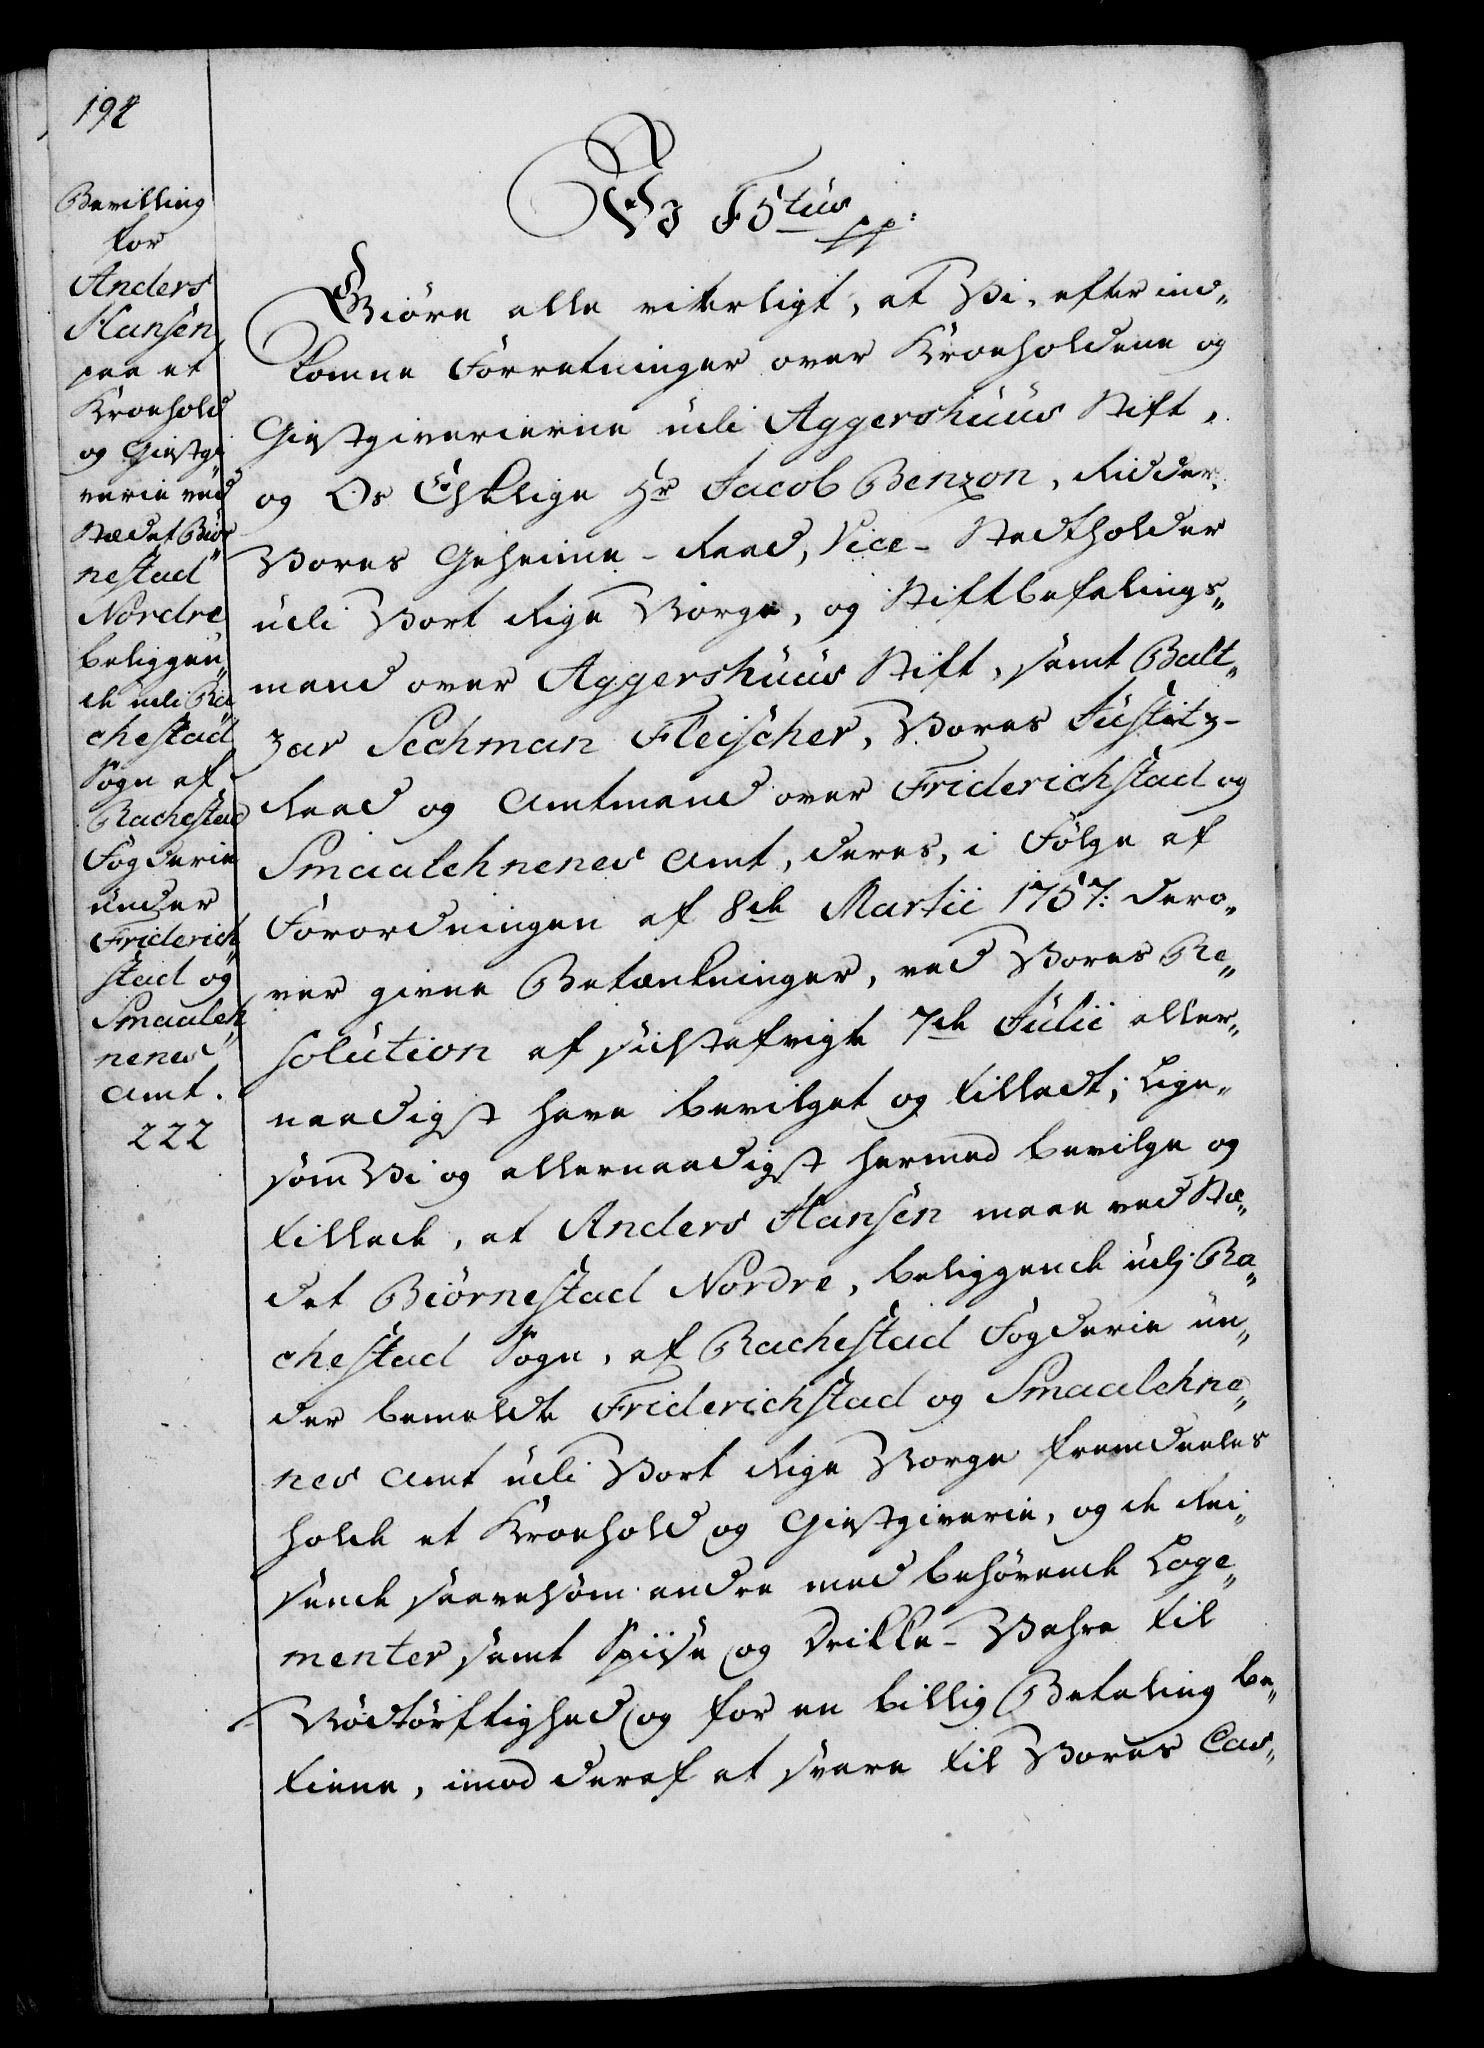 194
Bevilling
for
Anders
Hansen
paa et
Kroehold
og Giestgi„
verie ved
Stædet Biør„
nestad
Nordre
beliggen„
de udi Ra„
chestad
Sogn af
Rachestad
Fogderie
under
Friderich„
stad og
Smaaleh„
nenes
Amt.
222
Vi F5tus pp:
Giøre alle vitterligt, at Vi, efter ind„
komne Forretninger over Kroeholdene og
Giestgiverierne udi Aggershuus Stift,
og Os Elskelige Hr Jacob Benzon, Ridder,
Vores Geheime-Raad, Vice-Stadtholder
udi Vort Rige Norge, og Stiftbefalings„
mand over Aggershuus Stift, samt Balt„
zar Sechman Fleischer, Vores Justitz-
Raad og Amtmand over Friderichstad og
Smaalehnenes Amt, deres, i Følge af
Forordningen af 8de Martii 1757: dero„
ver givne Betænkninger, ved Vores Re„
solution af sidstafvigte 7de Julii aller„
naadigst have bevilget og tilladt; Lige„
som Vi og allernaadigst hermed bevilge og
tillade, at Anders Hansen maae ved Stæ„
det Biørnestad Nordre, beliggende udj Ra„
chestad Sogn, af Rachestad Fogderie un„
der bemeldte Friderichstad og Smaalehne„
nes Amt udi Vort Rige Norge fremdeeles
holde et Kroehold og Giestgiverie, og de Rei„
sende saavelsom andre med behørende Loge„
menter samt Spiise og Drikke-Vahre til
Nødtørftighed og for en billig Betaling be„
tiene, imod deraf at svare til Vores Cas„